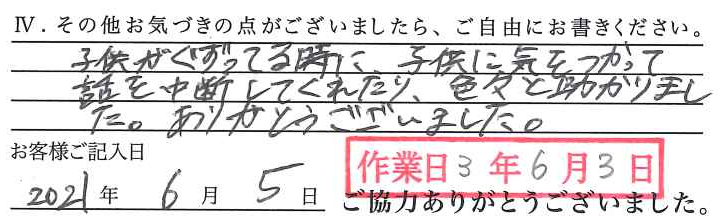 Ⅳ．その他お気づきの点がございましたら、ご自由にお書きください。
子供がぐずってる時に、子供に気をつかって
話を中断してくれたり、色々と助かりまし
た。ありがとうございました。
お客様ご記入日
作業日3年6月3日
2021年6月5日
ご協力ありがとうございました。